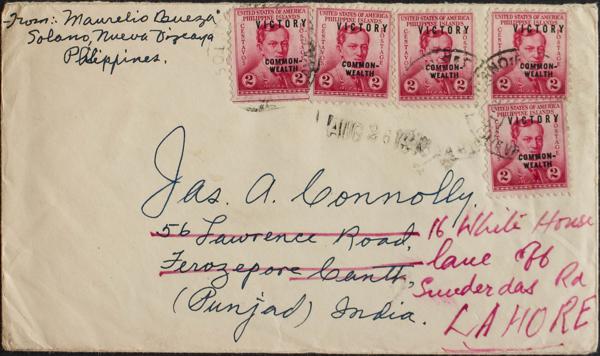 From: Maurelio Bueza
Solano, Nueva Vizcaya
Philippines.
UNITED STATES OF AMERICA
PHILIPPINE ISLANDS
VICTORY
CENTAVOS
POSTAGE
COMMON-
WEALTH
2 2
UNITED STATES OF AMERICA
PHILIPPINE ISLANDS
VICTORY
CENTAVOS
POSTAGE
COMMON-
WEALTH
2 2
UNITED STATES OF AMERICA
PHILIPPINE ISLANDS
VICTORY
CENTAVOS
POSTAGE
COMMON-
WEALTH
2 2
UNITED STATES OF AMERICA
PHILIPPINE ISLANDS
VICTORY
CENTAVOS
POSTAGE
COMMON-
WEALTH
2 2
PHILIPPINE ISLANDS
VICTORY
POSTAGE
COMMON-
WEALTH
2 2
AUG 26
Jas. A. Connolly.
56 Lawrence Road,
Ferozepore Cantt,
(Punjab) India.
16 White House
lane Off
Sunderdas Rd
LAHORE